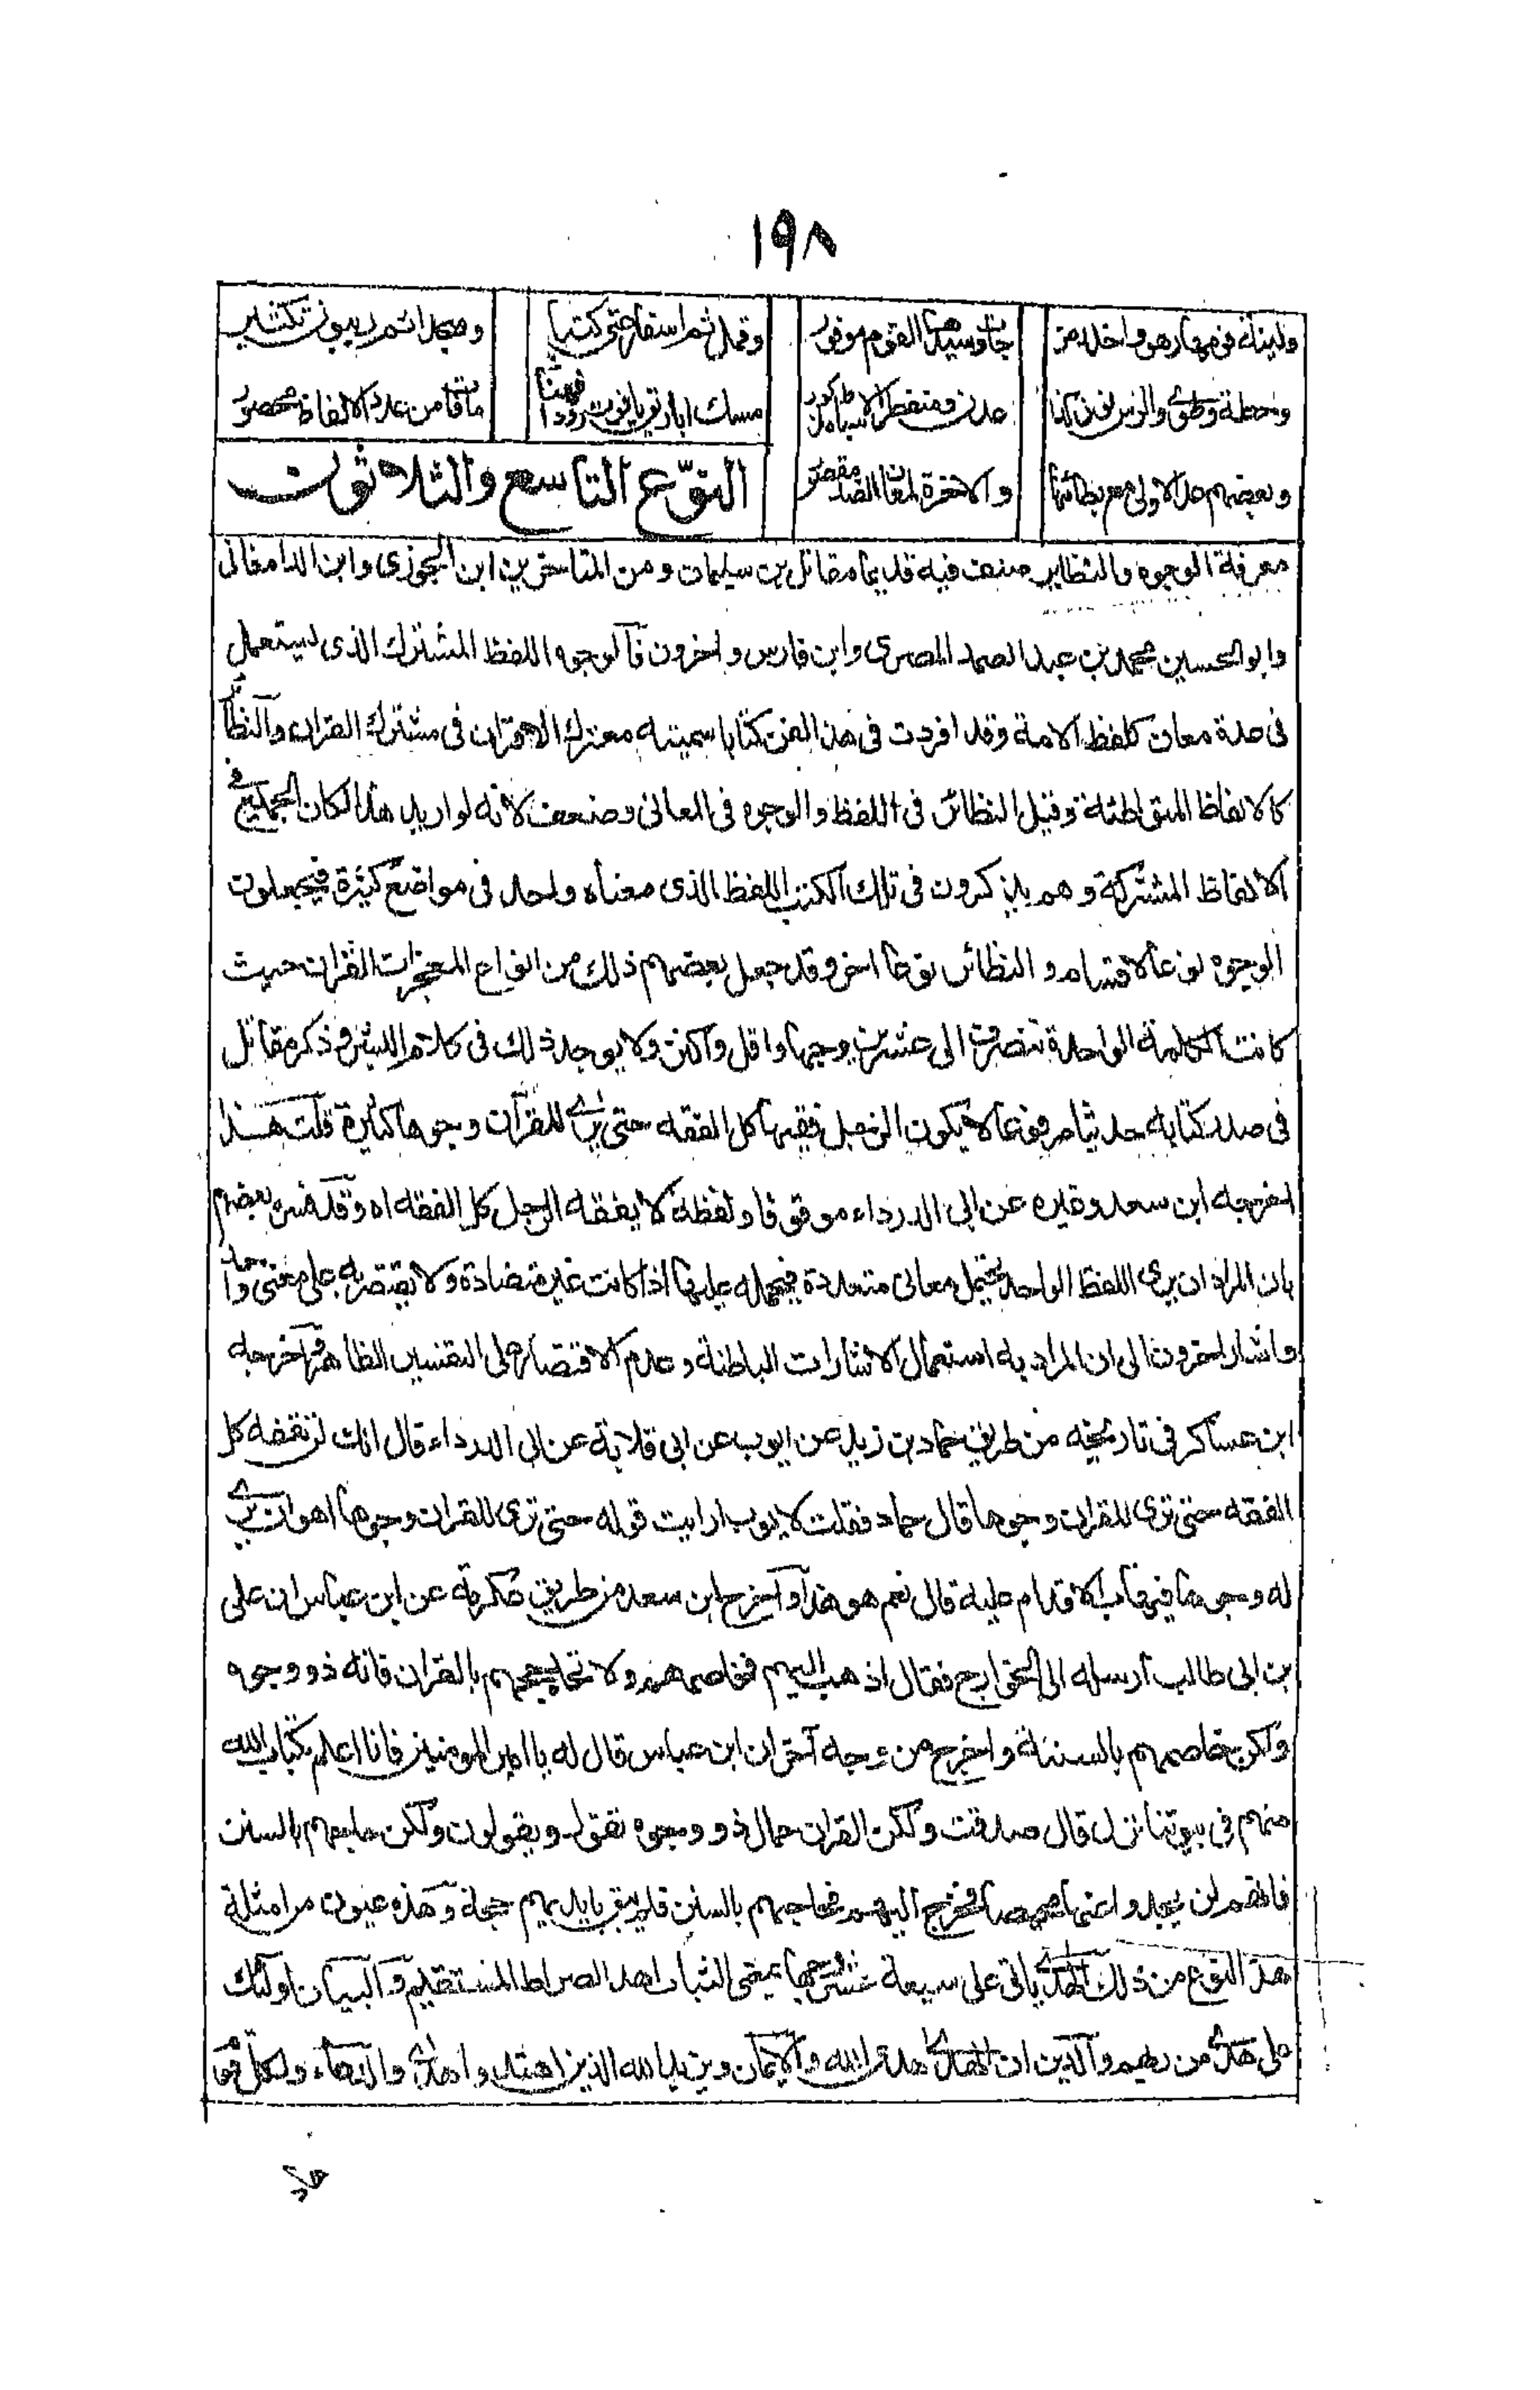 ١٩٨
ولينة في مهاد وسيدها القوم موفور وقمل ثم اسفار حتى كتبا وسجدا ثم ربيون تكثير
وحطة وطوى والرس نون كذا عدن ومنفطر الاسباط مذكور مسك اباريق ياقوت رووا فهنا ما فات من عدد الالفاظ محصور
وبعضهم عد الاولى مع بطائنها والاخرة لمعان الضد مقصور
النوع التاسع والثلاثون
معرفة الوجوه والنظاير صنف فيه قديما مقاتل بن سليمان ومن المتاخرين ابن الجوزى وابن الدامغانى
وابو الحسين محمد بن عبد الصمد المصرى وابن فارس واخرون فالوجوه اللفظ المشترك الذى يستعمل
فى عدة معان كلفظ الامة وقد افردت فى هذا الفن كتابا سميته معترك الاقران فى مشترك القران والنظائر
كالالفاظ المتواطئة وقيل النظائر فى اللفظ والوجوه فى المعانى وضعف لانه لو اريد هذا لكان الجميع فى
الالفاظ المشتركة وهم يذكرون فى تلك الكتب اللفظ الذى معناه واحد فى مواضع كثيرة فيجعلون
الوجوه نوعا لاقسام والنظائر نوعا اخر وقد جعل بعضهم ذلك من انواع المعجزات القران حيث
كانت الكلمة الواحدة تنصرف الى عشرين وجها واقل واكثر ولا يوجد ذلك فى كلام البشر وذكر مقاتل
فى صدر كتابه حديثا مرفوعا لا يكون الرجل فقيها كل الفقه حتى يرى للقرآن وجوها كثيرة قلت هذا
اخرجه ابن سعد وغيره عن ابى الدرداء موقوفا ولفظه لا يفقه الرجل كل الفقه اه وقد فسره بعضهم
بان المراد ان يرى اللفظ الواحد يحتمل معانى متعددة فيحمله عليها اذا كانت غير متضادة ولا يقتصر به على معنى واحد
واشار اخرون الى ان المراد به استعمال الاشارات الباطنة وعدم الاقتصار على التفسير الظاهر وقد اخرجه
ابن عساكر فى تاريخه من طريق حماد بن زيد عن ايوب عن ابى قلابة عن ابى الدرداء قال انك لن تفقه كل
الفقه حتى ترى للقران وجوها قال حماد فقلت لايوب ارايت قوله حتى ترى للقران وجوها اهو ان يرى
له وجوها فيهاب الاقدام عليه قال نعم هو هذا واخرج ابن سعد من طريق عكرمة عن ابن عباس ان على
بن ابى طالب ارسله الى الخوارج فقال اذهب اليهم فخاصمهم ولا تحاججهم بالقران فانه ذو وجوه
ولكن خاصمهم بالسنة واخرج من وجه آخر ان ابن عباس قال له يا امير المومنين فانا اعلم بكتاب الله
منهم فى بيوتنا نزل قال صدقت ولكن القران حمال ذو وجوه نقول ويقولون ولكن حاجهم بالسنن
فانهم لن يجدوا عنها محيصا فخرج اليهم فحاجهم بالسنن فلم يبق بايديهم حجة وهذه عيون من امثلة
هذا النوع من ذلك الهدى ياتى على سبعة عشر وجها بمعنى الثبات اهدنا الصراط المستقيم والبيان اولئك
على هدى من ربهم والدين ان الهدى هدى الله والايمان ويزيد الله الذين اهتدوا هدى والدعاء ولكل قوم
هاد